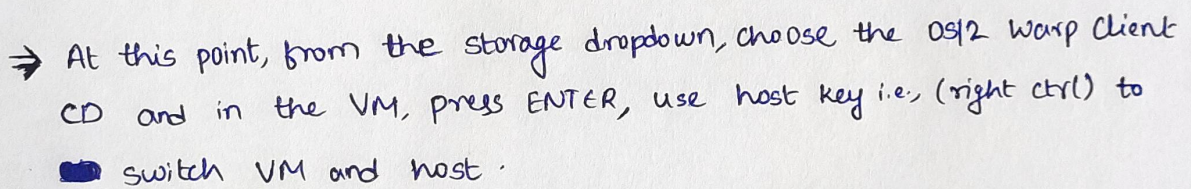 → At this point, from the storage dropdown, choose the OS/2 Warp Client
CD and in the VM, press ENTER, use host key i.e., (right ctrl) to
switch VM and host.